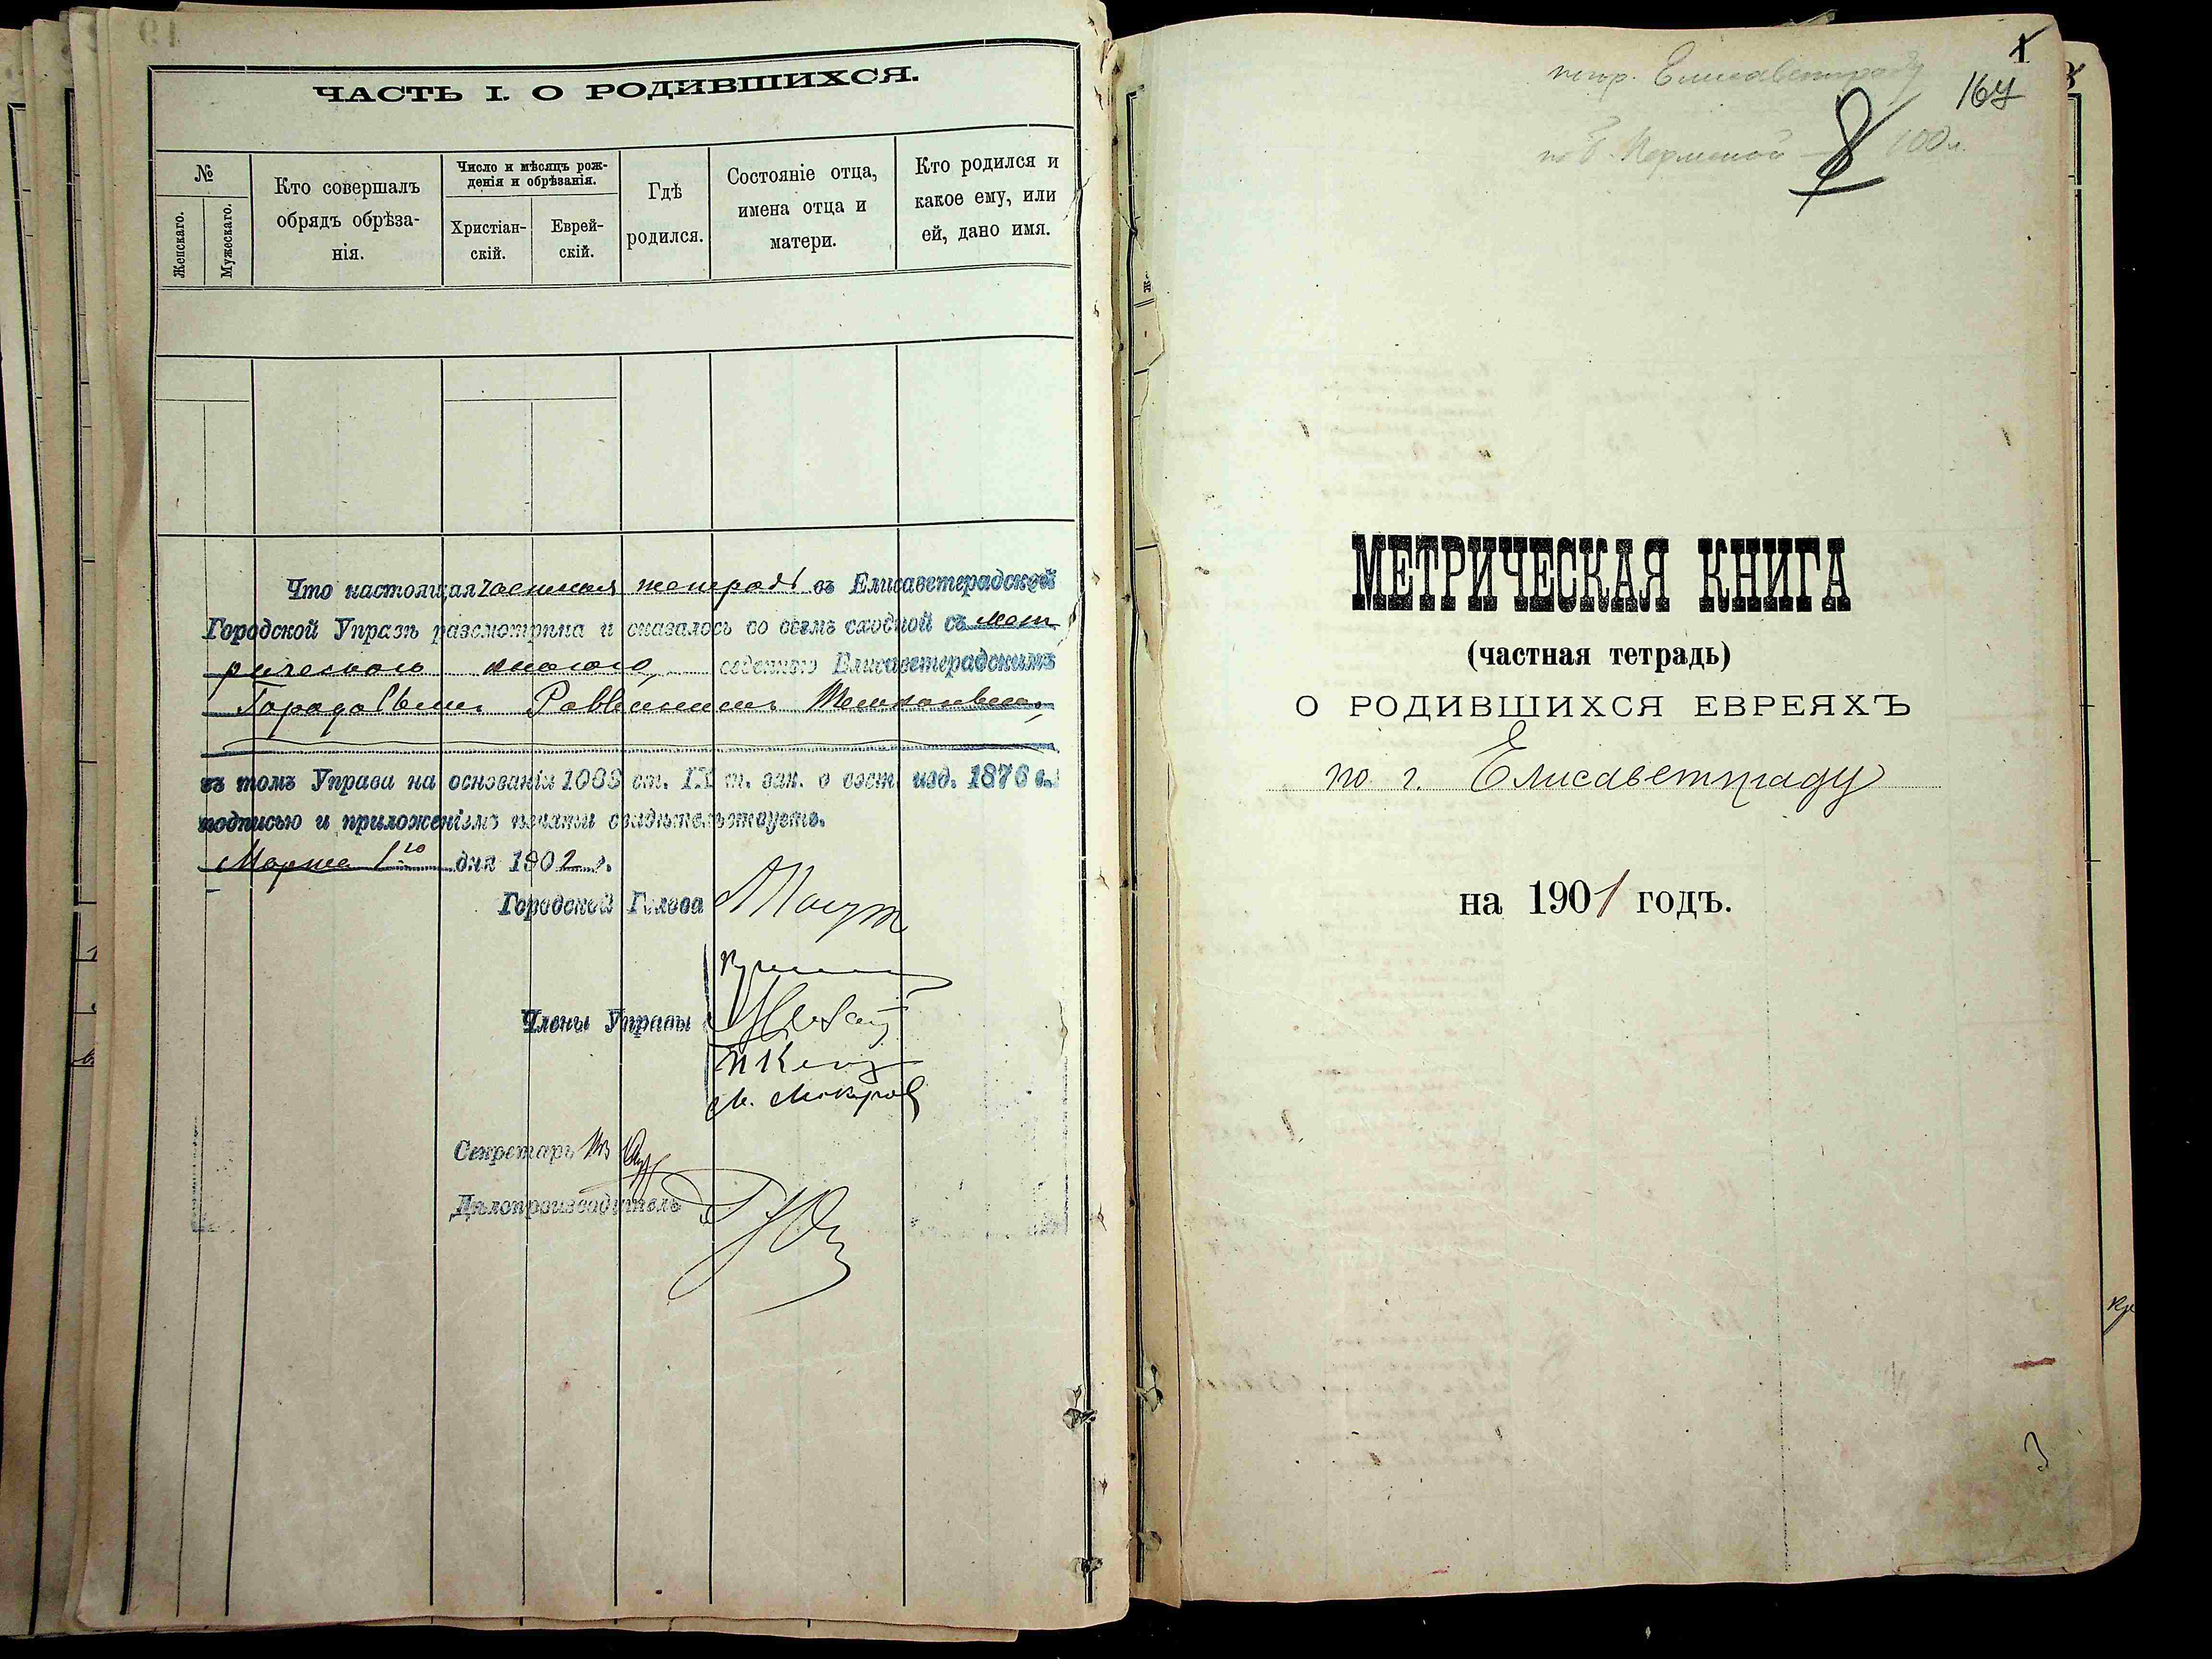 ЧАСТЬ I. О РОДИВШИХСЯ.
№
Женскаго.
Мужескаго.
Кто совершалъ
обрядъ обрѣза-
нія.
Число и мѣсяцъ рож-
денія и обрѣзанія.
Христіан-
скій.
Еврей-
скій.
Гдѣ
родился.
Состояніе отца,
имена отца и
матери.
Кто родился и
какое ему, или
ей, дано имя.
Что настоящая частная тетрадь въ Елисаветградской
Городской Управѣ разсмотрѣна и оказалось во всемъ сходной съ мет
рическою книгою, веденною Елисаветградскимъ
Городовымъ Раввиномъ
въ томъ Управа на основаніи 1083 ст. IX т. зак. о сост. изд. 1876 г.
подписью и приложеніемъ печати свидѣтельствуетъ.
Марта 1го дня 1902 г.
Городской Голова
Члены Управы
М. Макаров
Секретарь
Дѣлопроизводитель
Елисаветграду
100 л.
1
167
МЕТРИЧЕСКАЯ КНИГА
(частная тетрадь)
О РОДИВШИХСЯ ЕВРЕЯХЪ
по г. Елисаветграду
на 1901 годъ.
3